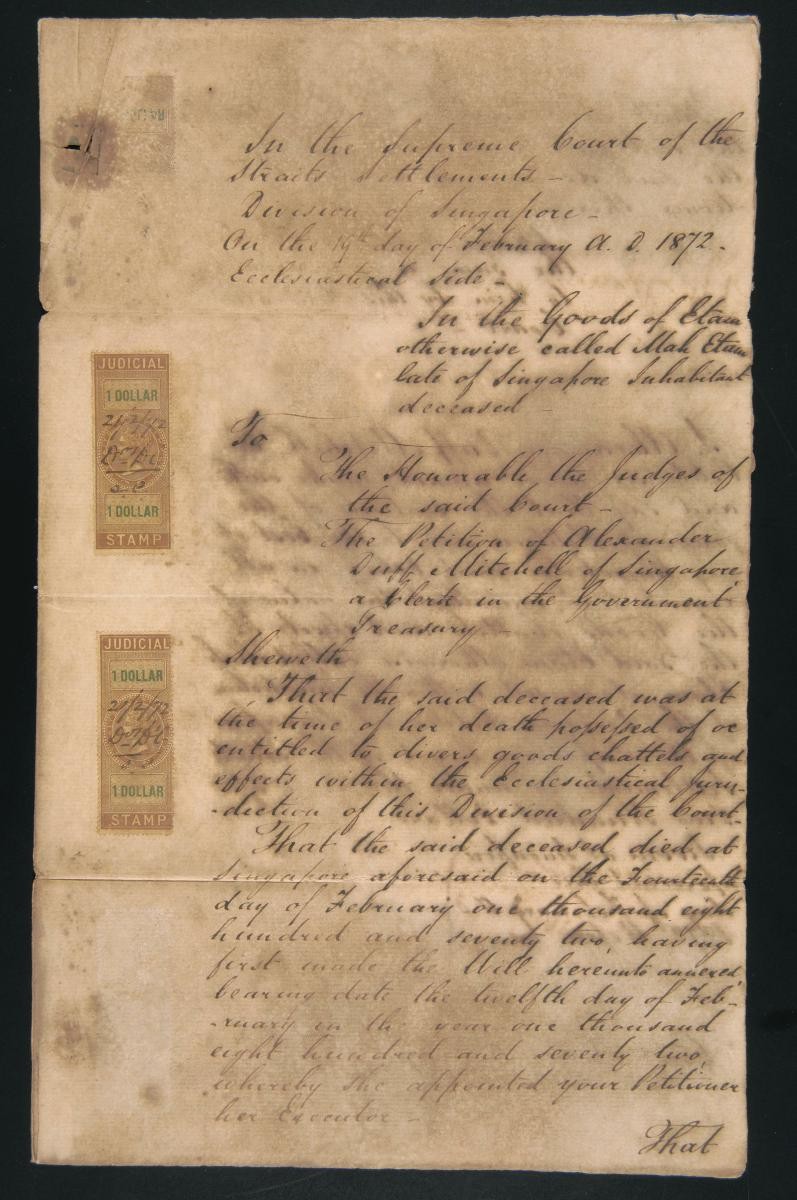 In the Supreme Court of the
Straits Settlements –
Division of Singapore –
On the 19th day of February A. D. 1872 –
Ecclesiastical Side –
In the Goods of Etam
otherwise called Mah Etam
late of Singapore Inhabitant
deceased –
To
The Honorable the Judges of
the said Court –
The Petition of Alexander
Duff Mitchell of Singapore
a Clerk in the Government
Treasury –
Sheweth
That the said deceased was at
the time of her death possessed of or
entitled to divers goods chattels and
effects within the Ecclesiastical Juris-
-diction of this Division of the Court –
That the said deceased died at
Singapore aforesaid on the Fourteenth
day of February one thousand eight
hundred and seventy two, having
first made the Will hereunto annexed
bearing date the twelfth day of Feb-
-ruary in the year one thousand
eight hundred and seventy two,
whereby she appointed your Petitioner
her Executor –
That
JUDICIAL
1 DOLLAR
21/2/72
1 DOLLAR
STAMP
JUDICIAL
1 DOLLAR
21/2/72
1 DOLLAR
STAMP